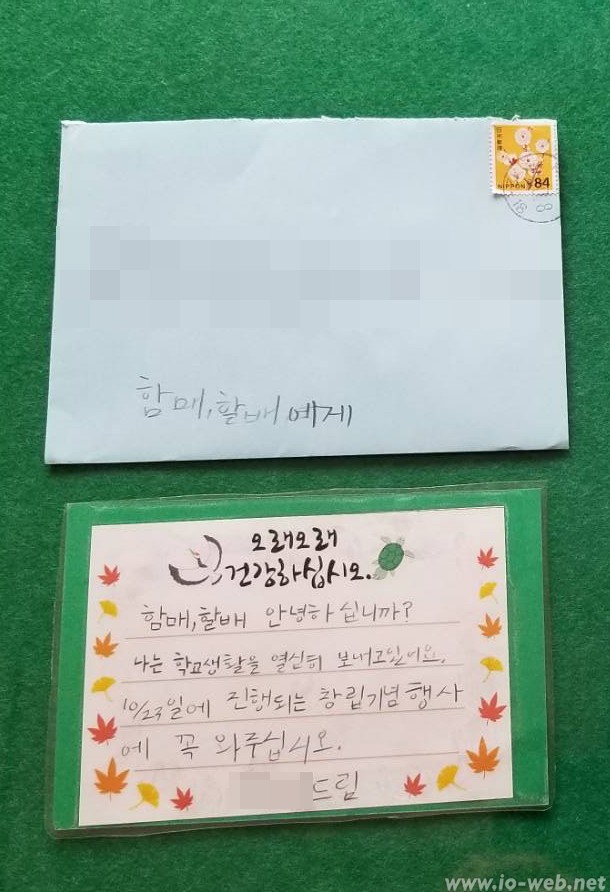 日本郵便
NIPPON 84
18
함매, 활배 예게
오래오래
건강하십시오.
함매, 활배 안녕하십니까?
나는 학교생활을 열심히 보내고있어요.
10/23일에 진행되는 창립기념행사
에 꼭 와주십시오.
드림
www.io-web.net